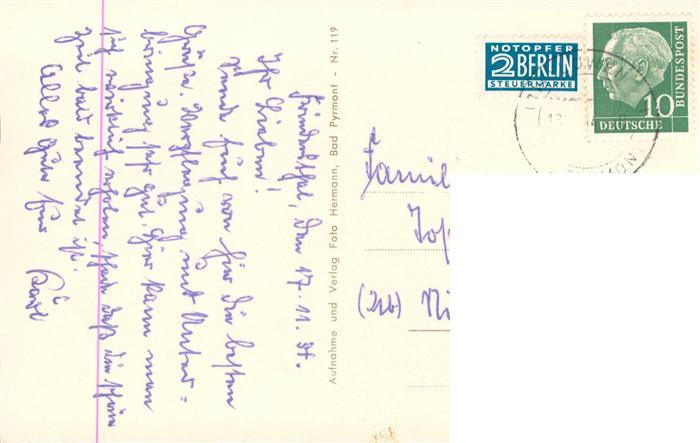 NOTOPFER
2 BERLIN
STEUERMARKE
10
DEUTSCHE
BUNDESPOST
Aufnahme und Verlag Foto Hermann, Bad Pyrmont - Nr. 119
Friedensthal, den 17.11.54.
Ihr Lieben!
Sende Euch von hier die besten
Grüße. Verpflegung und Unter-
bringung sehr gut. Hier kann man
sich wirklich erholen, schade daß die schöne
Zeit bald beendet ist.
Alles Gute Eur
Karl
Famil
Jos
Ni